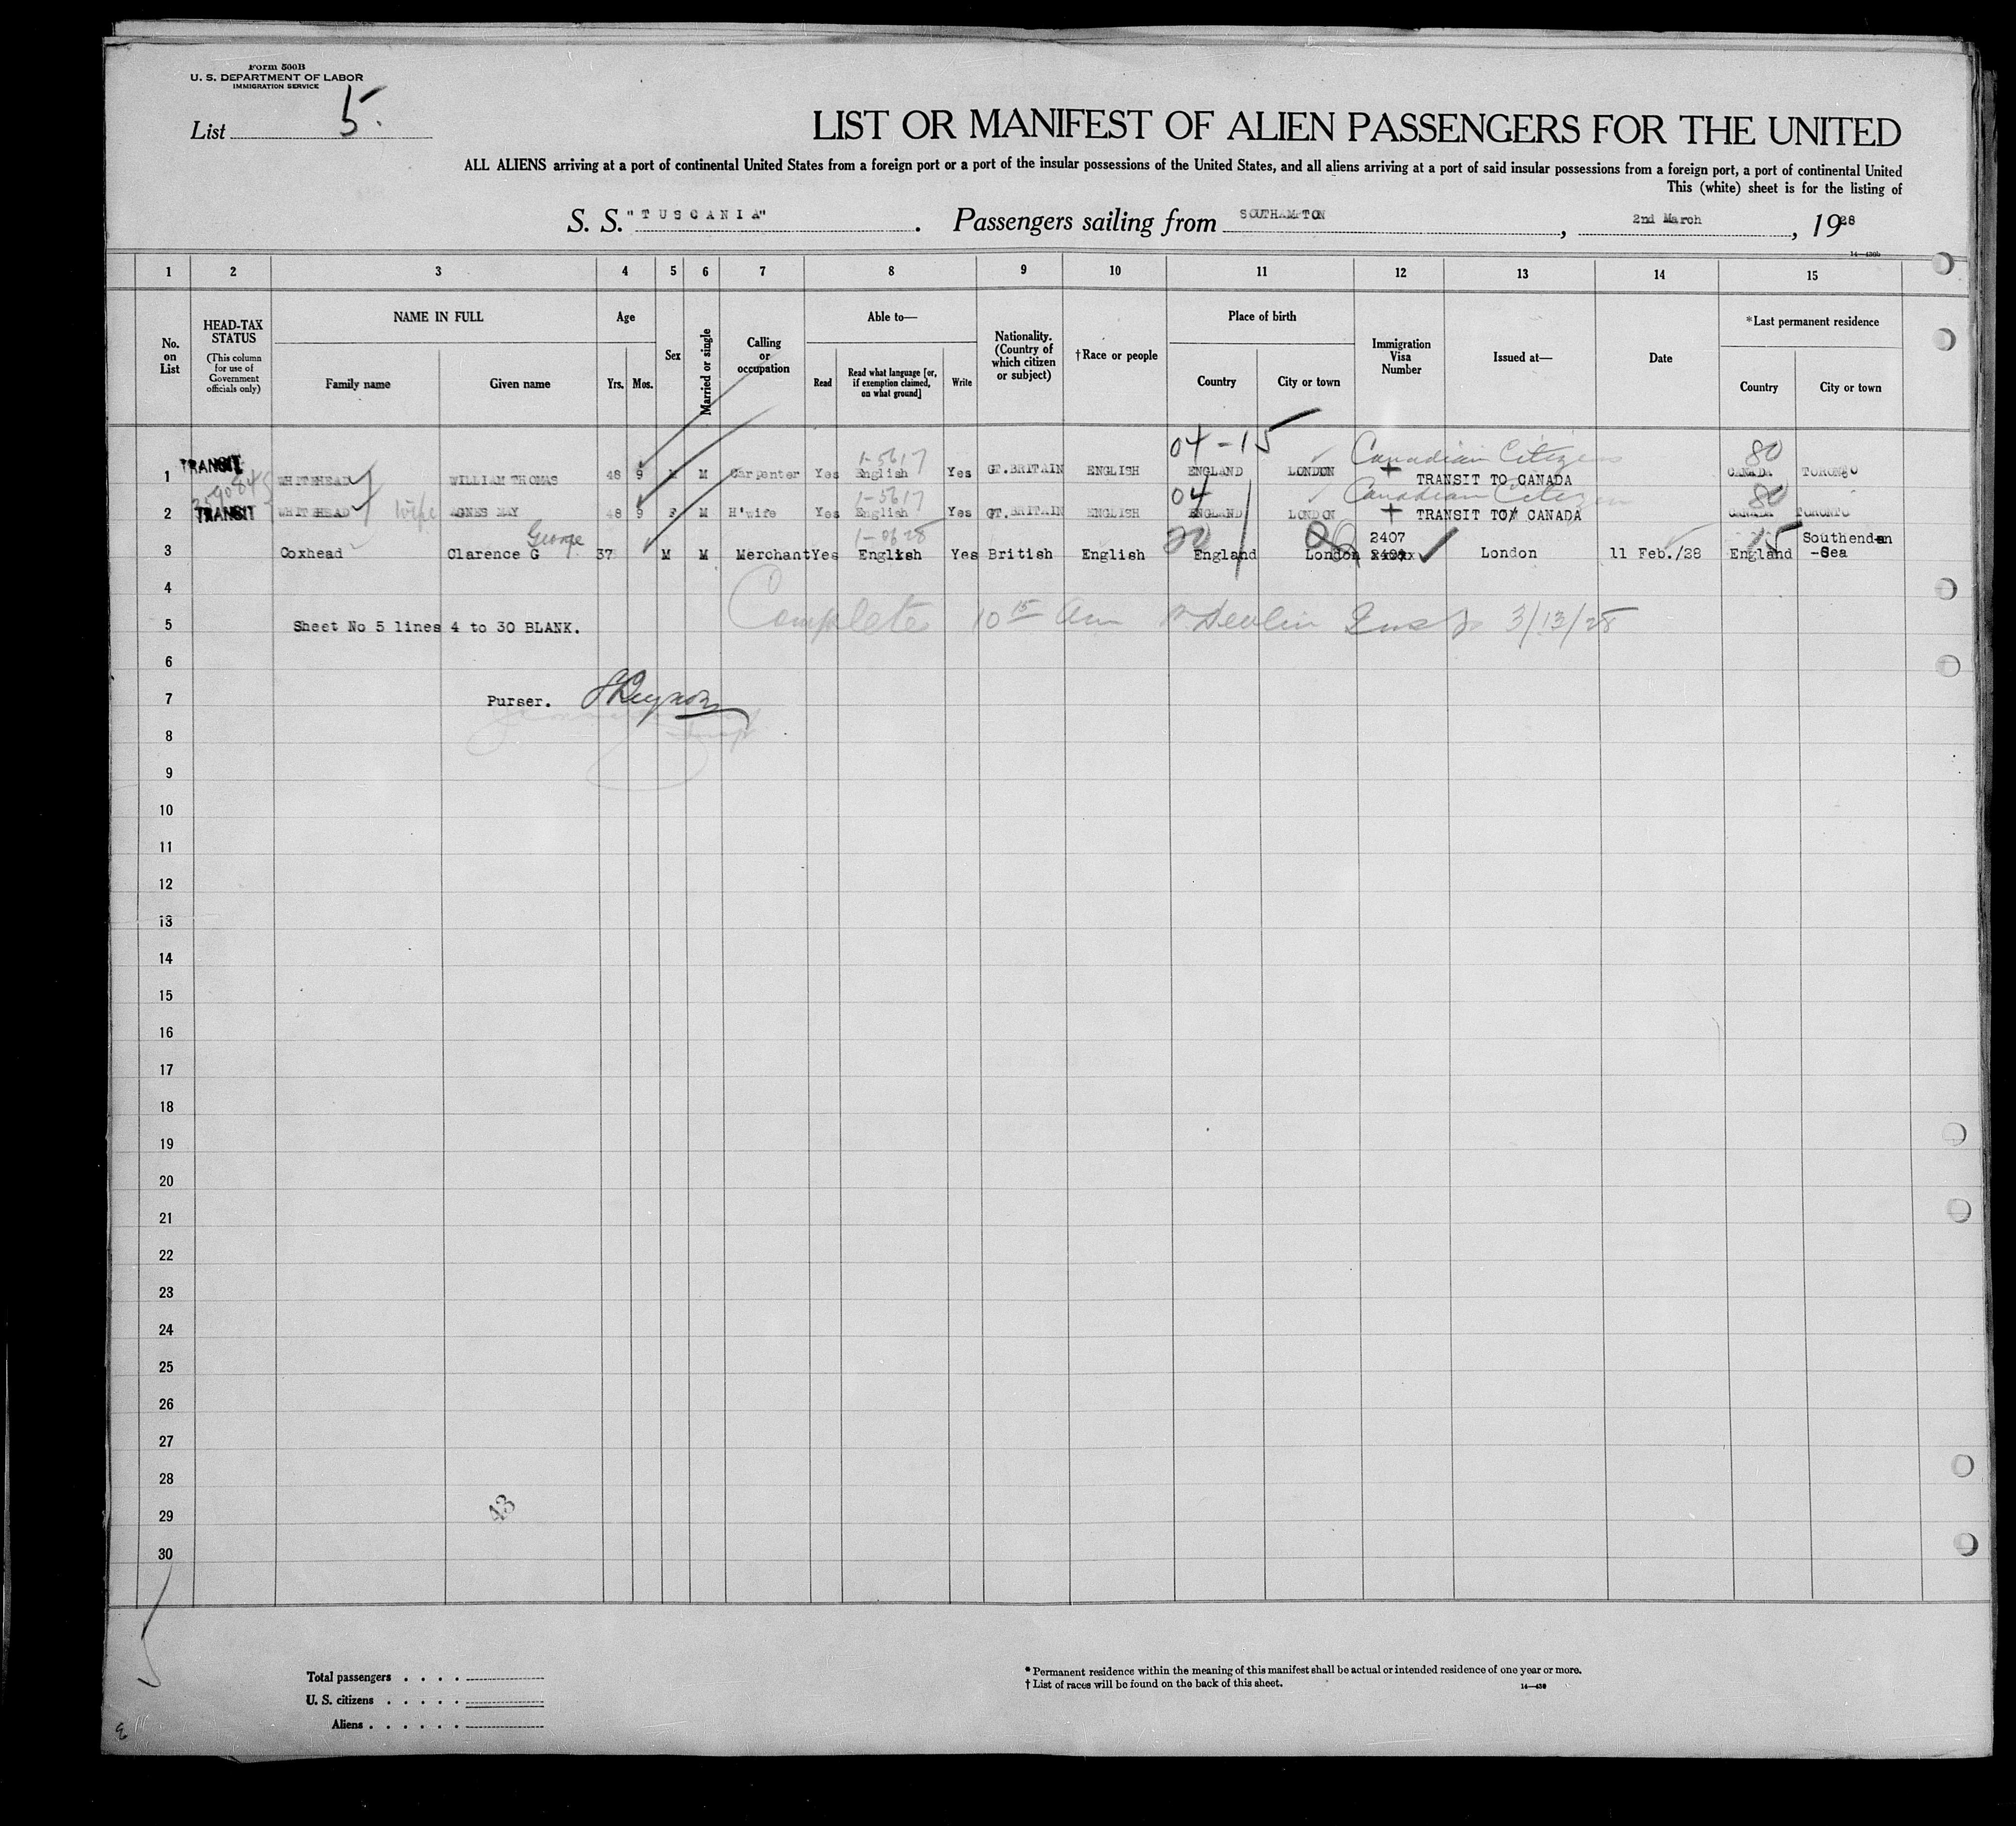 Form 500B
U. S. DEPARTMENT OF LABOR
IMMIGRATION SERVICE
List 5.
LIST OR MANIFEST OF ALIEN PASSENGERS FOR THE UNITED
ALL ALIENS arriving at a port of continental United States from a foreign port or a port of the insular possessions of the United States, and all aliens arriving at a port of said insular possessions from a foreign port, a port of continental United
This (white) sheet is for the listing of
S. S. "TUSCANIA". Passengers sailing from SOUTHAMPTON, 2nd March, 1928
14—430b
1 2 3 4 5 6 7 8 9 10 11 12 13 14 15
No. on List
HEAD-TAX STATUS
(This column for use of Government officials only)
NAME IN FULL
Family name
Given name
Age
Yrs. Mos.
Sex
Married or single
Calling or occupation
Able to—
Read
Read what language [or, if exemption claimed, on what ground]
Write
Nationality. (Country of which citizen or subject)
†Race or people
Place of birth
Country
City or town
Immigration Visa Number
Issued at—
Date
*Last permanent residence
Country
City or town
04-15 Canadian Citizen 80
1-5617
1 TRANSIT WHITEHEAD WILLIAM THOMAS 48 9 M M Carpenter Yes English Yes GT.BRITAIN ENGLISH ENGLAND LONDON + TRANSIT TO CANADA CANADA TORONTO
1-5617 04 Canadian Citizen 80
2 TRANSIT WHITEHEAD wife AGNES MAY 48 9 F M H'wife Yes English Yes GT.BRITAIN ENGLISH ENGLAND LONDON + TRANSIT TO CANADA CANADA TORONTO
George 1-0628 20 06 2407 15 Southend-on
3 Coxhead Clarence G 37 M M Merchant Yes English Yes British English England London London 11 Feb./28 England -Sea
4
Complete 10 15 am Devlin Insp 3/13/28
5 Sheet No 5 lines 4 to 30 BLANK.
6
7 Purser.
8
9
10
11
12
13
14
15
16
17
18
19
20
21
22
23
24
25
26
27
28
43
29
30
Total passengers . . . .
U. S. citizens . . . . .
Aliens . . . . . .
* Permanent residence within the meaning of this manifest shall be actual or intended residence of one year or more.
† List of races will be found on the back of this sheet.
14—430